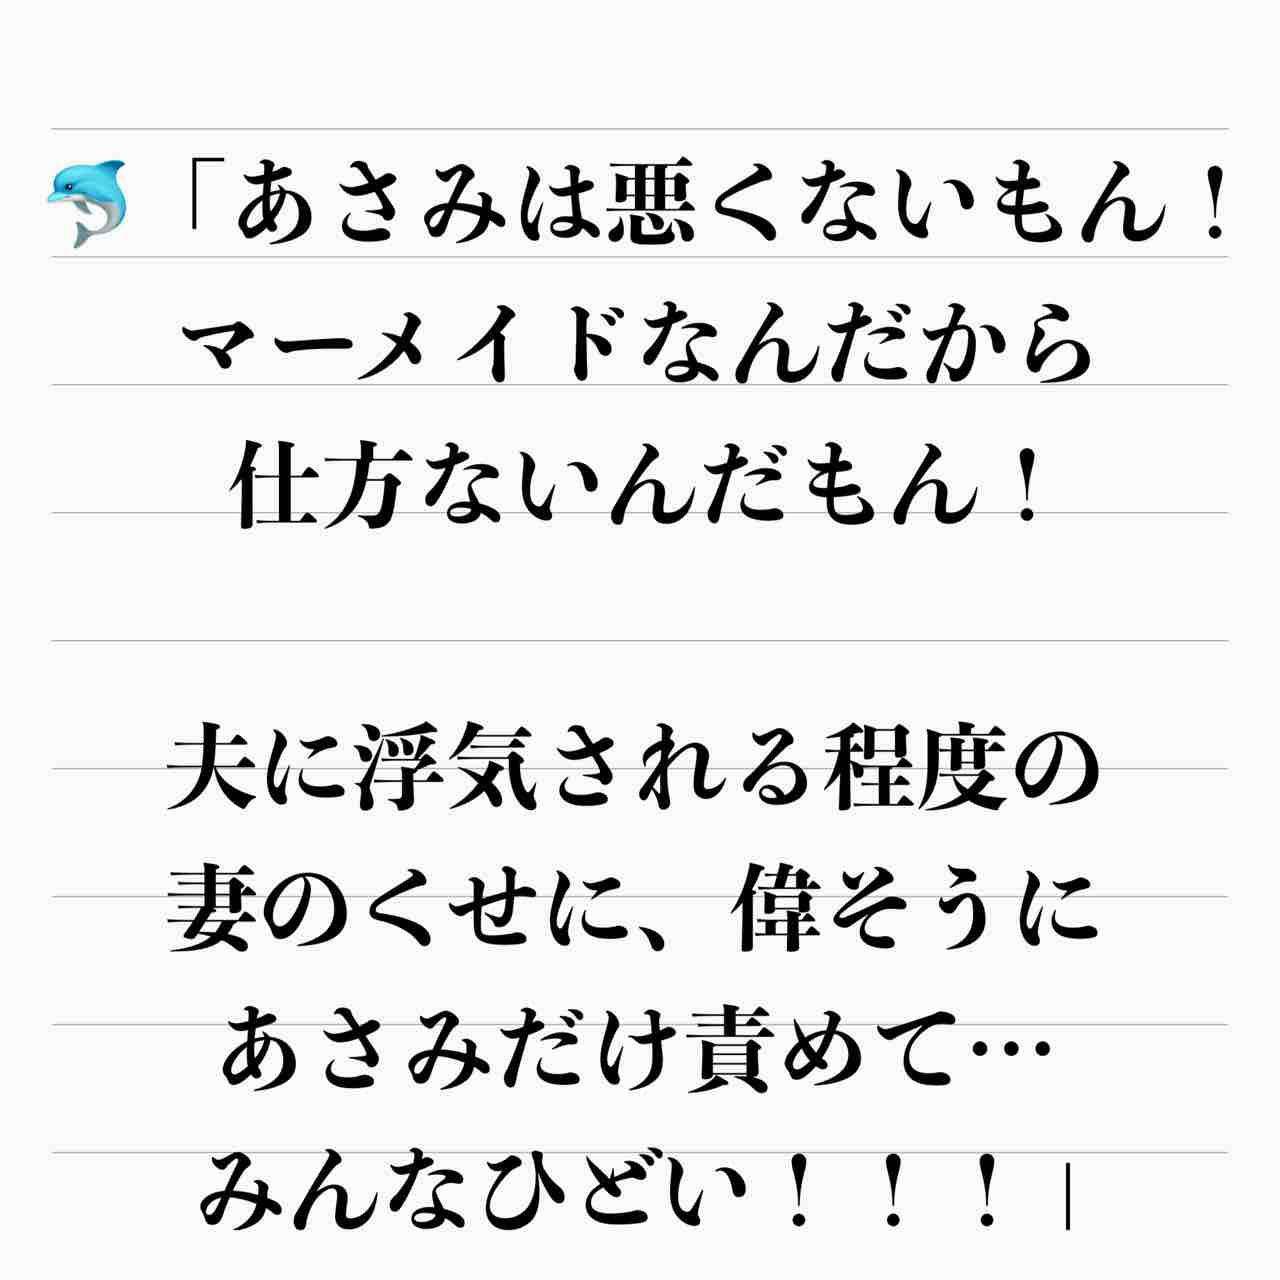 🐬「あさみは悪くないもん！
マーメイドなんだから
仕方ないんだもん！
夫に浮気される程度の
妻のくせに、偉そうに
あさみだけ責めて…
みんなひどい！！！|